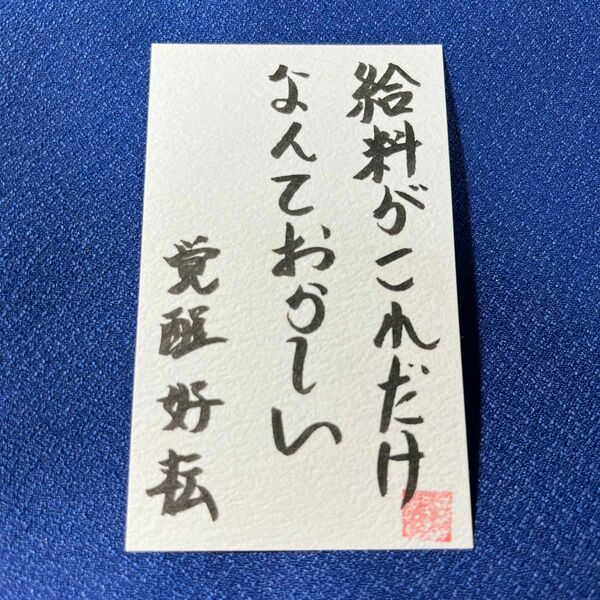 給料がこれだけ
なんておかしい
覚醒好転